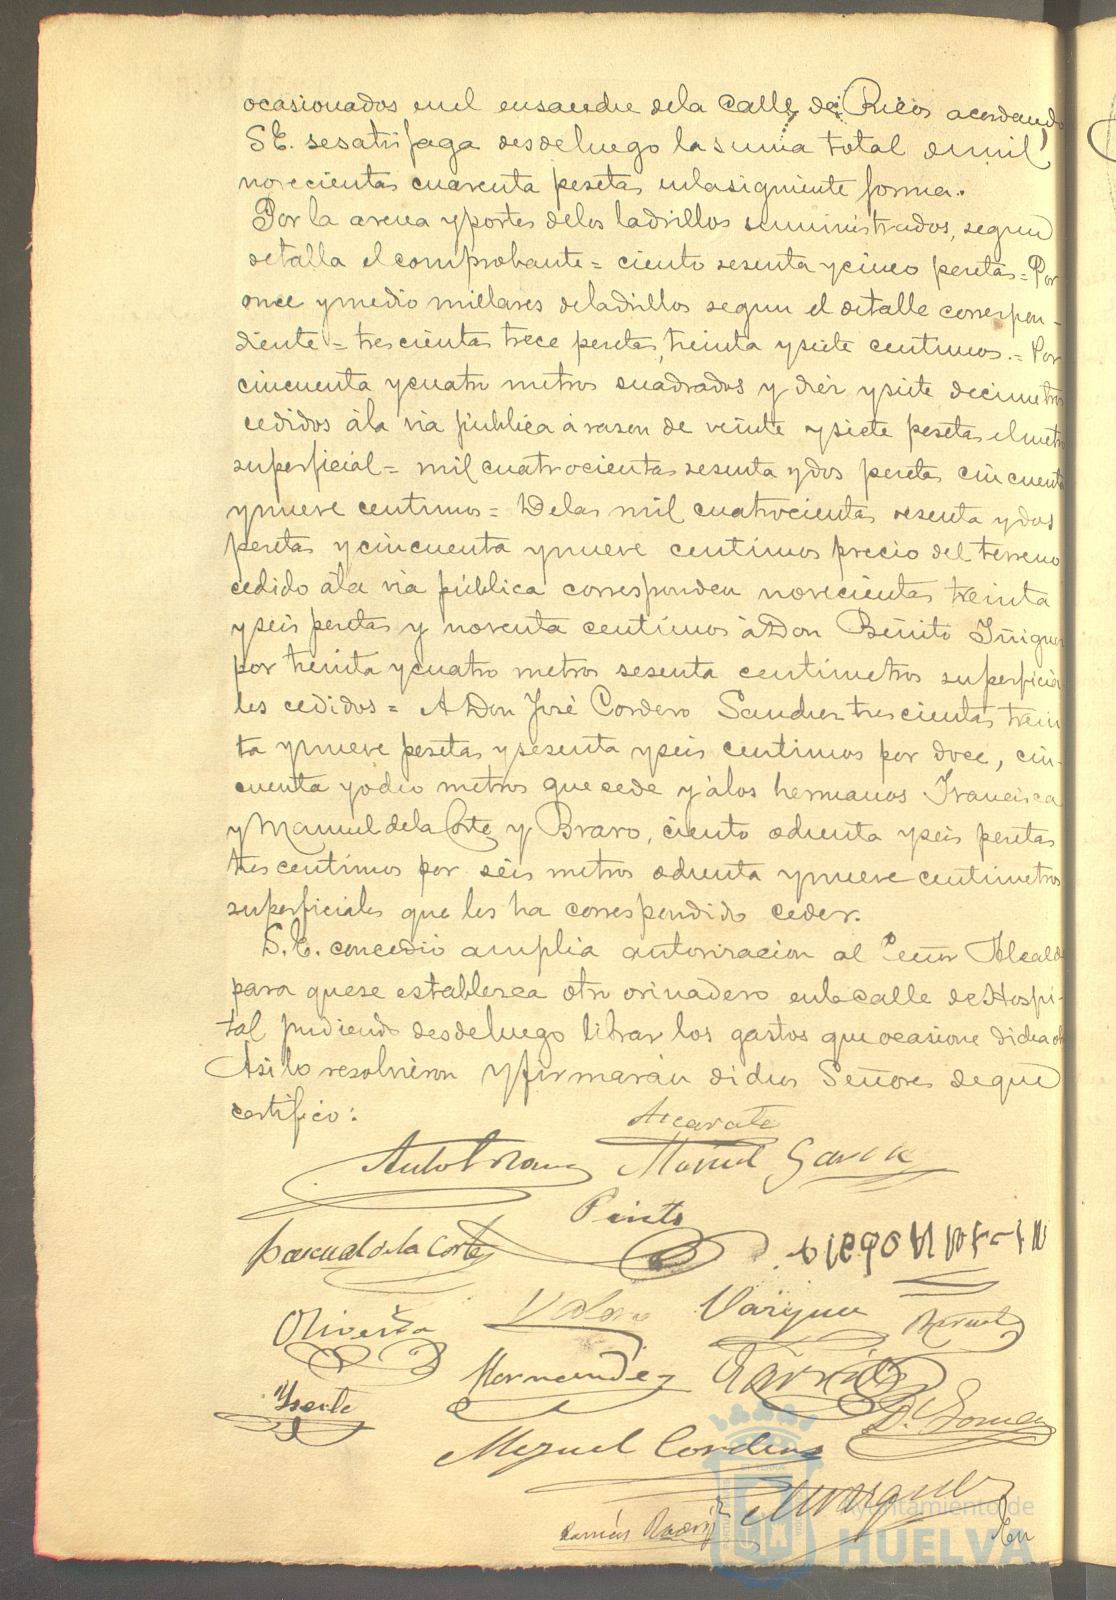 ocasionados enel ensanche dela Calle de Ricos acordando
S.E. sesatisfaga desdeluego la suma total demil
novecientas cuarenta pesetas enlasiguiente forma.
Por la arena yportes delos ladrillos suministrados, segun
detalla el comprobante = ciento sesenta ycinco pesetas = Por
once ymedio millares deladrillos segun el detalle correspon-
diente = trescientas trece pesetas, treinta ysiete centimos. = Por
cincuenta ycuatro metros cuadrados y diez ysiete decimetros
cedidos ála via pública á razon de veinte ysiete pesetas elmetro
superficial = mil cuatrocientas sesenta ydos pesetas cincuenta
ynueve centimos = Delas mil cuatrocientas sesenta ydos
pesetas ycincuenta ynueve centimos precio del terreno
cedido ála via pública corresponden novecientas treinta
yseis pesetas y noventa centimos á Don Benito Iñiguez
por treinta ycuatro metros sesenta centimetros superficia
les cedidos = A Don José Cordero Sanchez trescientas trein
ta ynueve pesetas ysesenta yseis centimos por doce, cin-
cuenta yocho metros que cede y álos hermanos Francisca
y Manuel dela Corte y Bravo, ciento ochenta yseis pesetas
tres centimos por seis metros ochenta ynueve centimetros
superficiales que les ha correspondido ceder.
S.E. concedió amplia autorizacion al Señor Alcalde
para quese establezca otro orinadero enlacalle de Hospi-
tal pudiendo desdeluego librar los gastos que ocasione dicha ob
Asi lo resolvieron yfirmarán dichos Señores deque
certifico:
Manuel Garcia
Pinto
Pascual de la Corte
Oliveira Valero Vazquez
Hernandez Garcia
D. Gomez
Miguel Cordero
Marquez
En
Ayuntamiento de
HUELVA